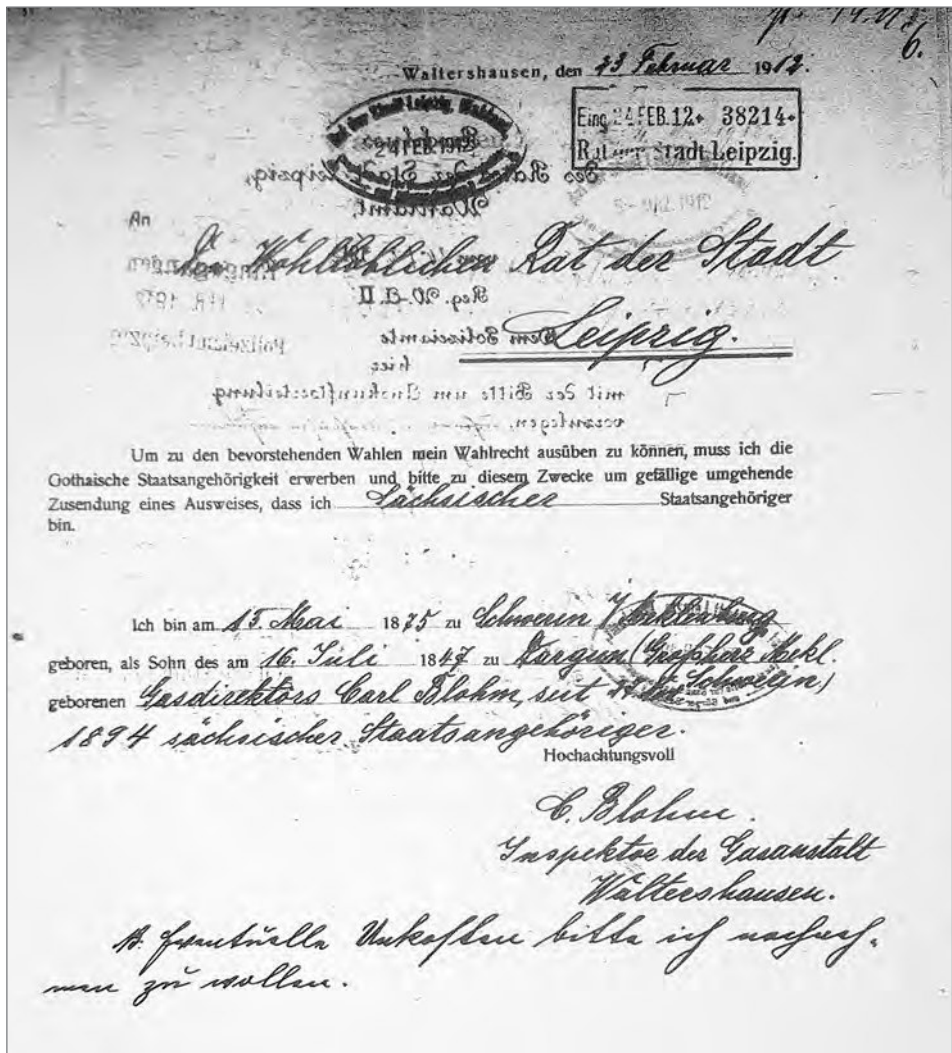 6.
Waltershausen, den 23 Februar 1912.
Rat der Stadt Leipzig,
24 FEB. 1912
Eing. 24 FEB. 12 * 38214 *
Rat der Stadt Leipzig.
des Rates der Stadt Leipzig,
Wahlamt.
An
Den Wohllöblichen Rat der Stadt
Reg. W.-A. II
Leipzig.
Dem Polizeiamte
Polizeiamt Leipzig
hier
mit der Bitte um Auskunfterteilung
vorzulegen.
Um zu den bevorstehenden Wahlen mein Wahlrecht ausüben zu können, muss ich die
Gothaische Staatsangehörigkeit erwerben und bitte zu diesem Zwecke um gefällige umgehende
Zusendung eines Ausweises, dass ich Sächsischer Staatsangehöriger
bin.
Ich bin am 15. Mai 1875 zu Schwerin /Mecklenburg
geboren, als Sohn des am 16. Juli 1847 zu Dargun (Großherz. Mekl.
Schwerin)
geborenen Gasdirektors Carl Blohm, seit
1894 sächsischer Staatsangehöriger.
Hochachtungsvoll
C. Blohm.
Inspektor der Gasanstalt
Waltershausen.
Eventuelle Unkosten bitte ich nachneh-
men zu wollen.